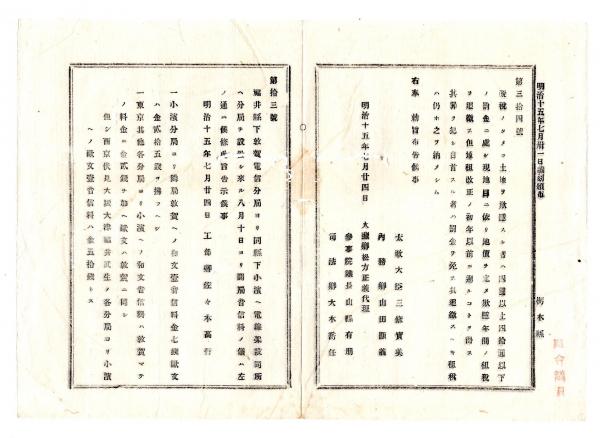 明治十五年七月卅一日
栃木縣
第三拾四號
脱税ノタメ土地ヲ欺隱スル者ハ四圓以上四拾圓以下
ノ罰金ニ處シ現地目ニ依リ地價ヲ定メ欺隱年間ノ租税
ヲ追徴ス但地租改正ノ初年以前ニ遡ルコトヲ得ス
其罪ヲ犯シ自首スル者ハ罰金ヲ免シ其追徴スヘキ租税
ハ仍ホ之ヲ納メシム
右奉 勅旨布告候事
明治十五年七月廿四日
太政大臣三條實美
内務卿山田顯義
大藏卿松方正義代理
參事院議長山縣有朋
司法卿大木喬任
第拾三號
福井縣下敦賀電信分局ヨリ同縣下小濱ヘ電線架設同所
ヘ分局ヲ設置シ來ル八月十日ヨリ開局音信料ノ儀ハ左
ノ通候條此旨告示候事
明治十五年七月廿四日 工部卿佐々木高行
一小濱分局ヨリ 敦賀ヘノ和文壹音信料金七錢歐文
ハ金貳拾五錢ヲ拂フヘシ
一東京其他各分局ヨリ小濱ヘノ和文音信料ハ敦賀マテ
ノ料金ニ金貳錢ヲ加ヘ歐文ハ敦賀ニ同シ
但シ西京伏見大阪大津 各分局ヨリ小濱
ヘノ歐文壹音信料ハ金五拾錢トス